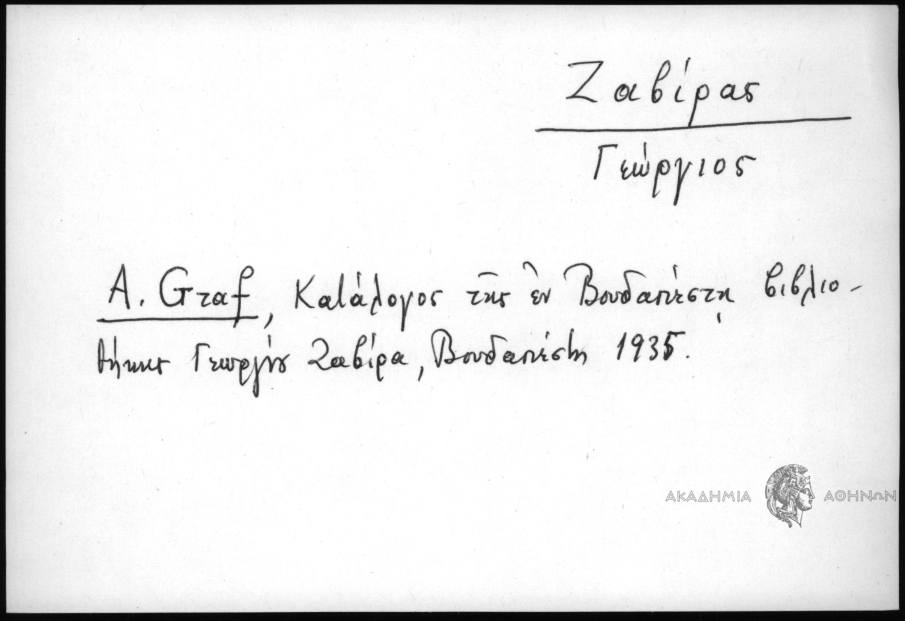 Ζαβίρας
Γεώργιος
A. Graf, Κατάλογος τῆς ἐν Βουδαπέστῃ βιβλιο-
θήκης Γεωργίου Ζαβίρα, Βουδαπέστη 1935.
ΑΚΑΔΗΜΙΑ ΑΘΗΝΩΝ